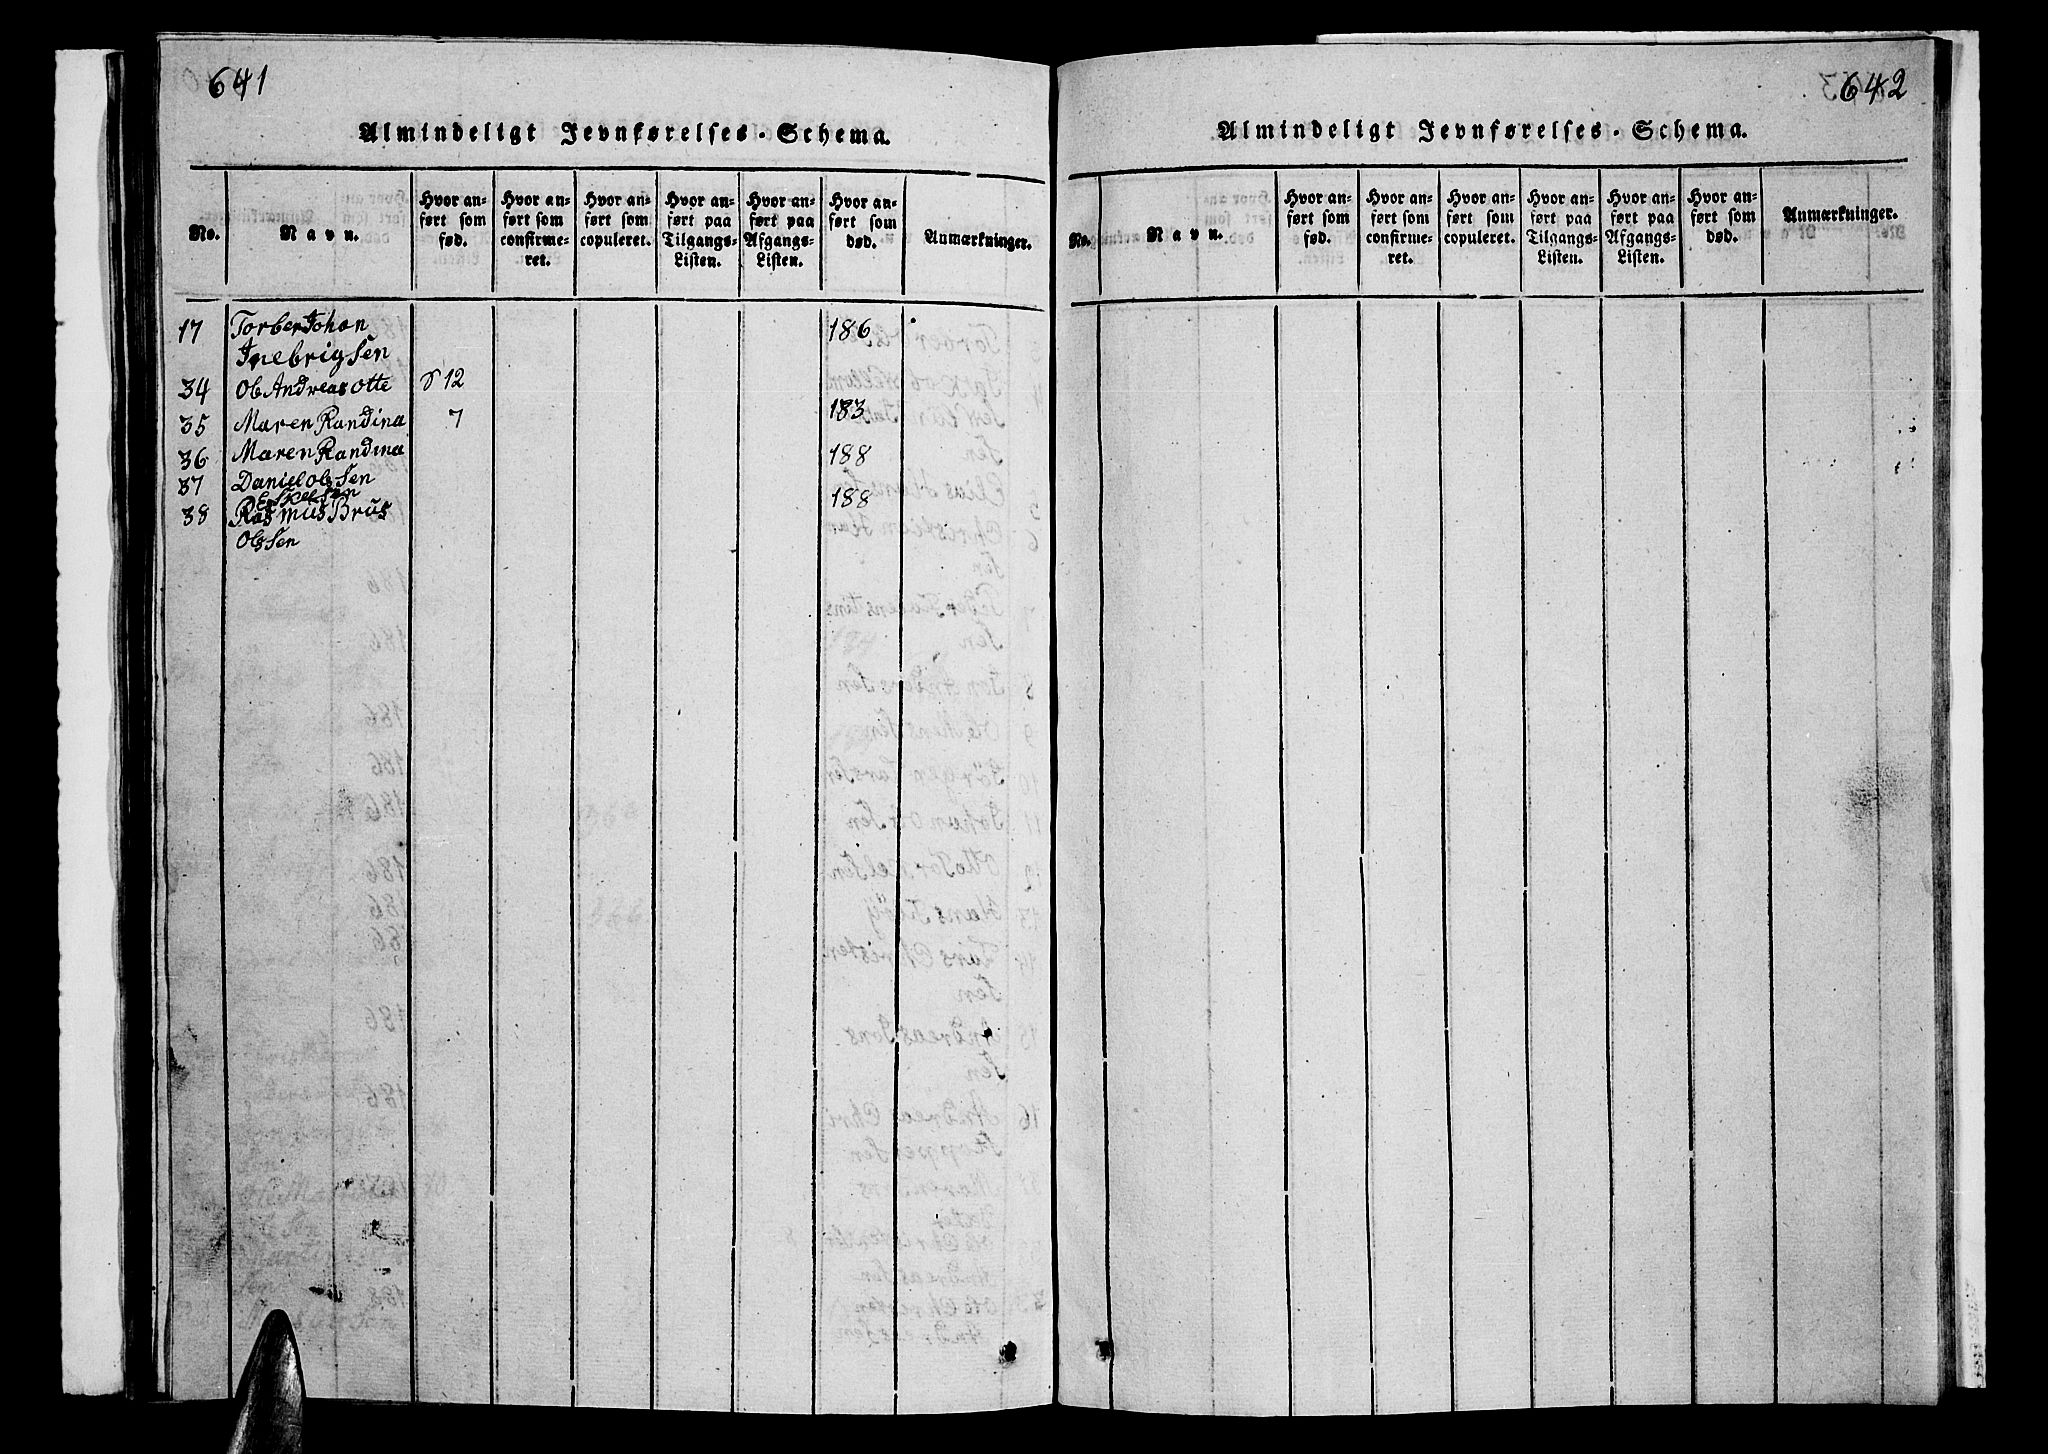 641
Almindeligt Jevnførelses-Schema.
No.
Navn.
Hvor an-
ført som
fød.
Hvor an-
ført som
confirme-
ret.
Hvor an-
ført som
copuleret.
Hvor an-
ført paa
Tilgangs-
Listen.
Hvor an-
ført paa
Afgangs-
Listen.
Hvor an-
ført som
død.
Anmærkninger.
17 Torber Johan 186
Inebrigsen
34 Ob Andreas Otte 12
35 Maren Randina 7 183
36 Maren Randina 188
37 Daniel olsSen
EskelSen 188
38 Rasmus Brus
OlsSen
642
Almindeligt Jevnførelses-Schema.
No.
Navn.
Hvor an-
ført som
fød.
Hvor an-
ført som
confirme-
ret.
Hvor an-
ført som
copuleret.
Hvor an-
ført paa
Tilgangs-
Listen.
Hvor an-
ført paa
Afgangs-
Listen.
Hvor an-
ført som
død.
Anmærkninger.